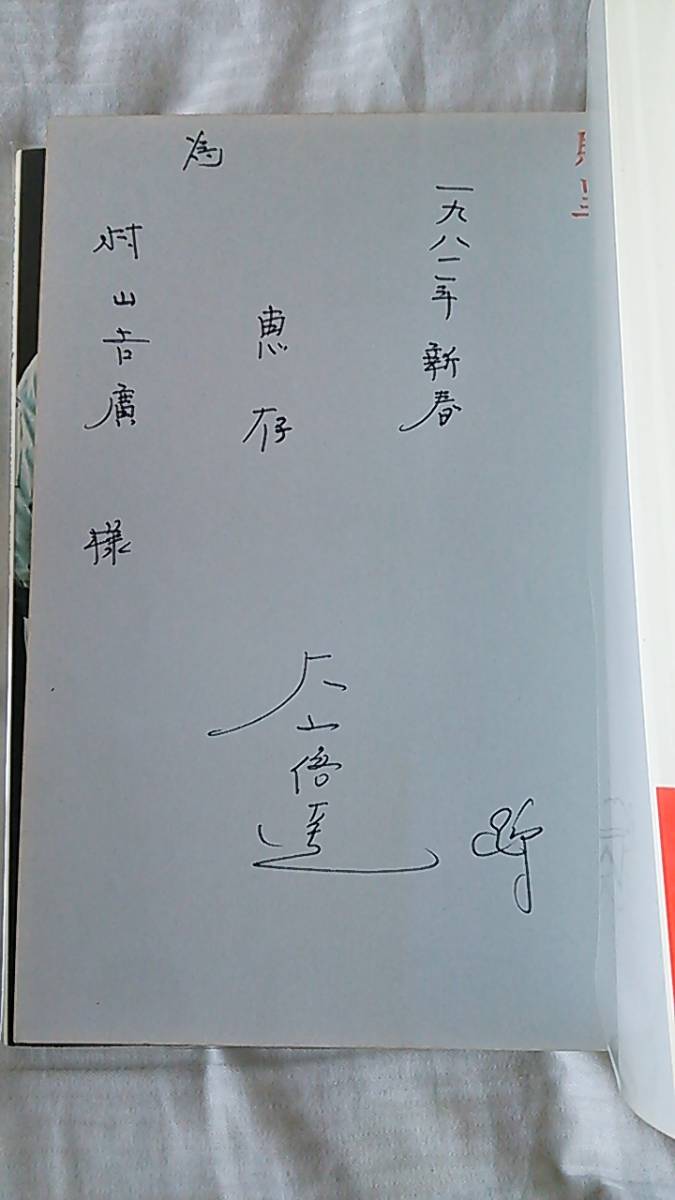 一九八二年 新春
惠存
為
村山吉廣 様
大山倍達